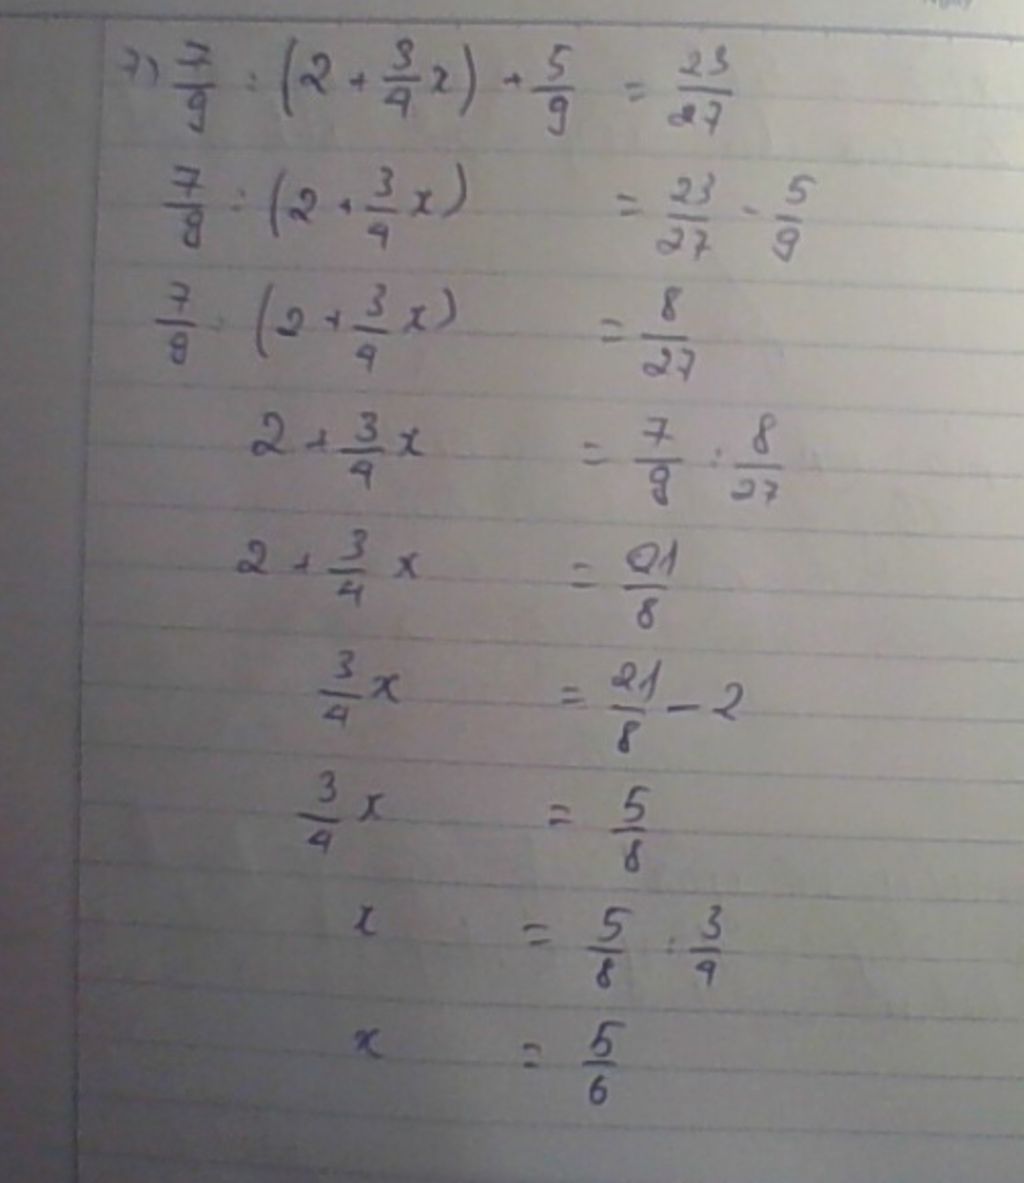 7) 7/9 : (2 + 3/4 x) + 5/9 = 23/27
7/9 : (2 + 3/4 x) = 23/27 - 5/9
7/9 : (2 + 3/4 x) = 8/27
2 + 3/4 x = 7/9 : 8/27
2 + 3/4 x = 21/8
3/4 x = 21/8 - 2
3/4 x = 5/8
x = 5/8 : 3/4
x = 5/6